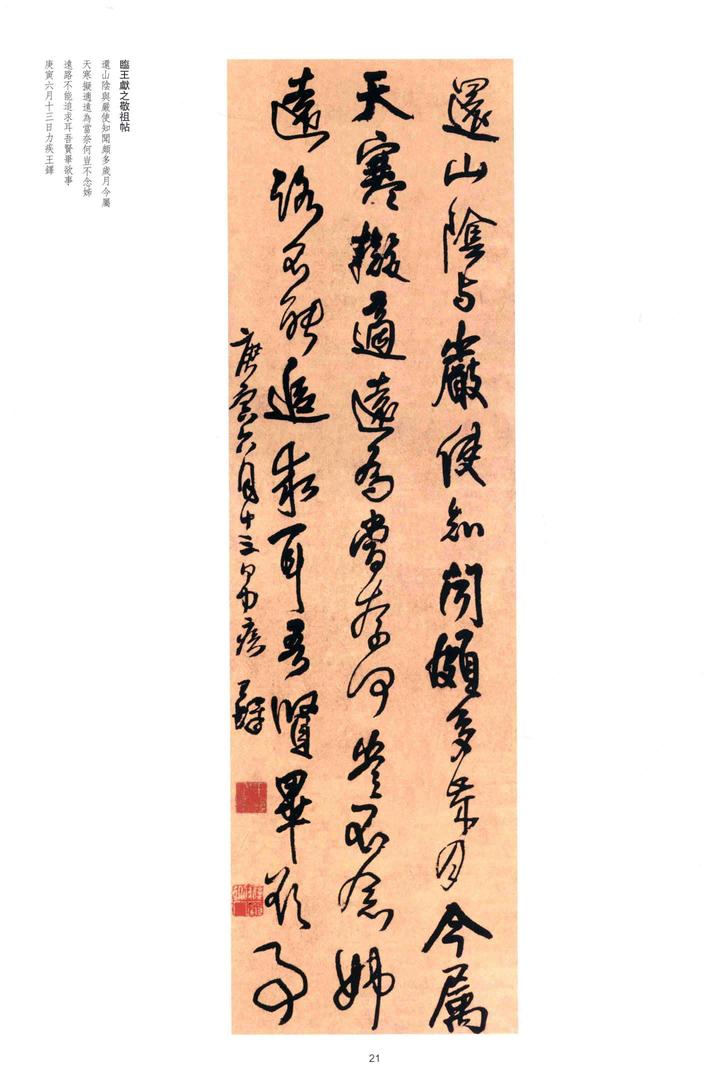 臨王獻之敬祖帖
還山陰與嚴使知聞頗多歲月今屬
天寒擬適遠為當奈何豈不念姊
遠路不能追求耳吾賢畢欲事
庚寅六月十三日力疾王鐸
還山陰与嚴使知聞頗多歲月今屬
天寒擬適遠為當奈何豈不念姊
遠路不能追求耳吾賢畢欲事
庚寅六月十三日力疾王鐸
21